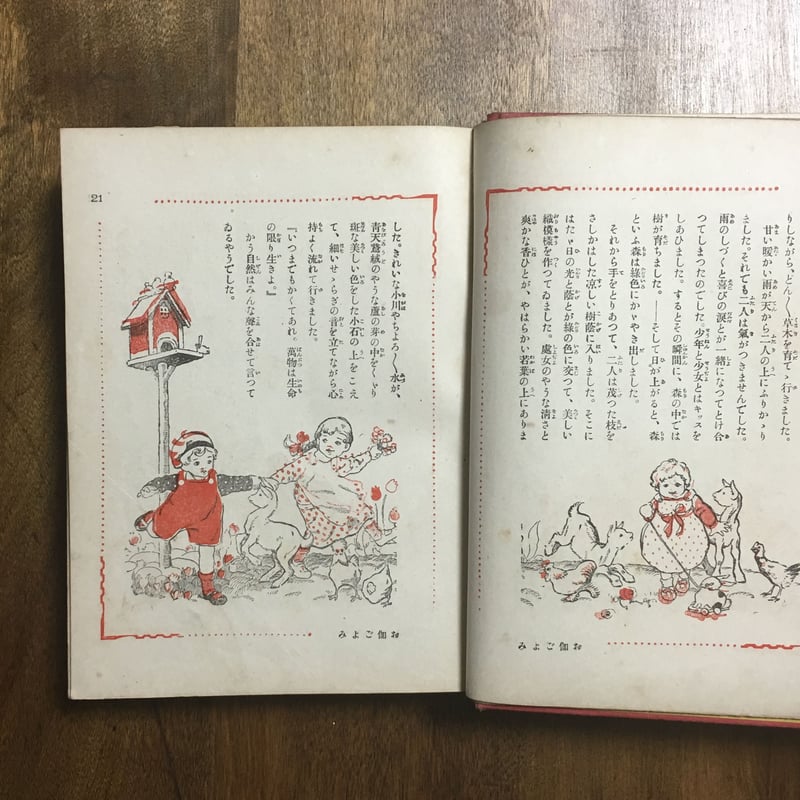 りしながら、どん〱草木を育てゝ行きました。
甘い暖かい雨が天から二人の上にふりかゝり
ました。それでも二人は氣がつきませんでした。
雨のしづくと喜びの涙とが一緒になつてとけ合
つてしまつたのでした。少年と少女とはキッスを
しあひました。するとその瞬間に、森の中では
樹が育ちました。——そして日が上がると、森
といふ森は綠色にかゞやき出しました。
それから手をとりあつて、二人は茂つた枝を
さしかはした凉しい樹蔭に入りました。そこに
はたゞ日の光と蔭とが綠の色に交つて、美しい
織模樣を作つてゐました。處女のやうな淸さと
爽かな香ひとが、やはらかい若葉の上にありま
お伽ごよみ
21
した。きれいな小川やちよろ〱水が、
靑天鵞絨のやうな蘆の芽の中をくゞり
斑な美しい色をした小石の上をこえ
て、細いせゝらぎの音を立てながら心
持よく流れて行きました。
『いつまでもかくてあれ。萬物は生命
の限り生きよ。』
かう自然はみんな聲を合せて言つて
ゐるやうでした。
お伽ごよみ